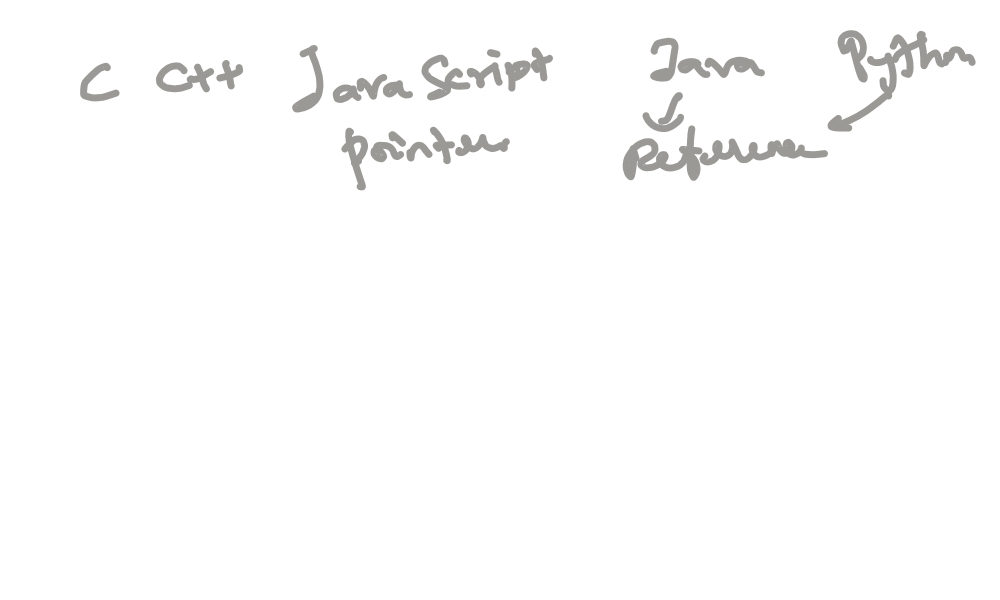 C C++ JavaScript Java Python
pointer Reference